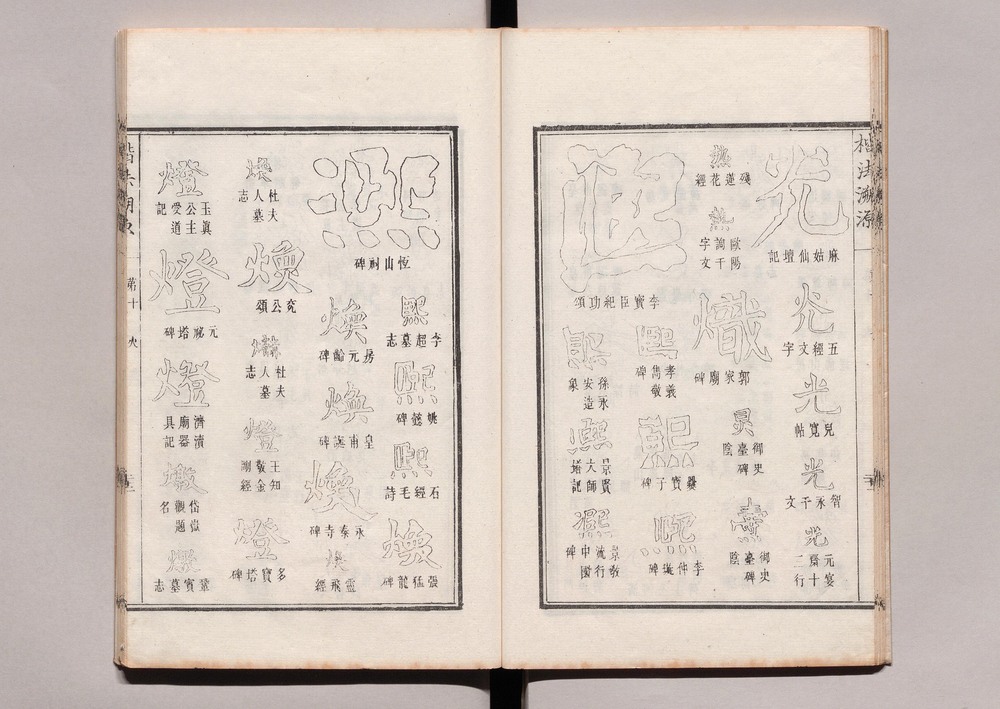 楷法溯源
光
麻姑仙壇記
光
五經文字
光
兒寬帖
光
智永千文
光
元宴
齋十
二行
熱
殘蓮花經
熱
歐陽
詢千
字文
熾
郭家廟碑
炅
御史
臺碑
陰
燾
御史
臺碑
陰
熙
李寶臣紀功頌
熙
孝義
雋敬
碑
熙
爨寶子碑
熙
李仲琁碑
熙
徐永
安造
象
熙
景賢
大師
塔記
熙
景教
流行
中國
碑
熙
恆山祠碑
熙
李超墓志
熙
姚懿碑
熙
石經毛詩
煥
張猛龍碑
煥
房元齡碑
煥
皇甫誕碑
煥
永泰寺碑
煥
靈飛經
煥
杜夫
人墓
志
煥
兗公頌
杜夫
人墓
志
燈
王知
敬金
剛經
燈
多寶塔碑
燈
玉真
公主
受道
記
燈
元祕塔碑
燈
濟瀆
廟器
具記
墩
岱嶽
觀題
名
鞏賓墓志
楷法溯源
第十
火